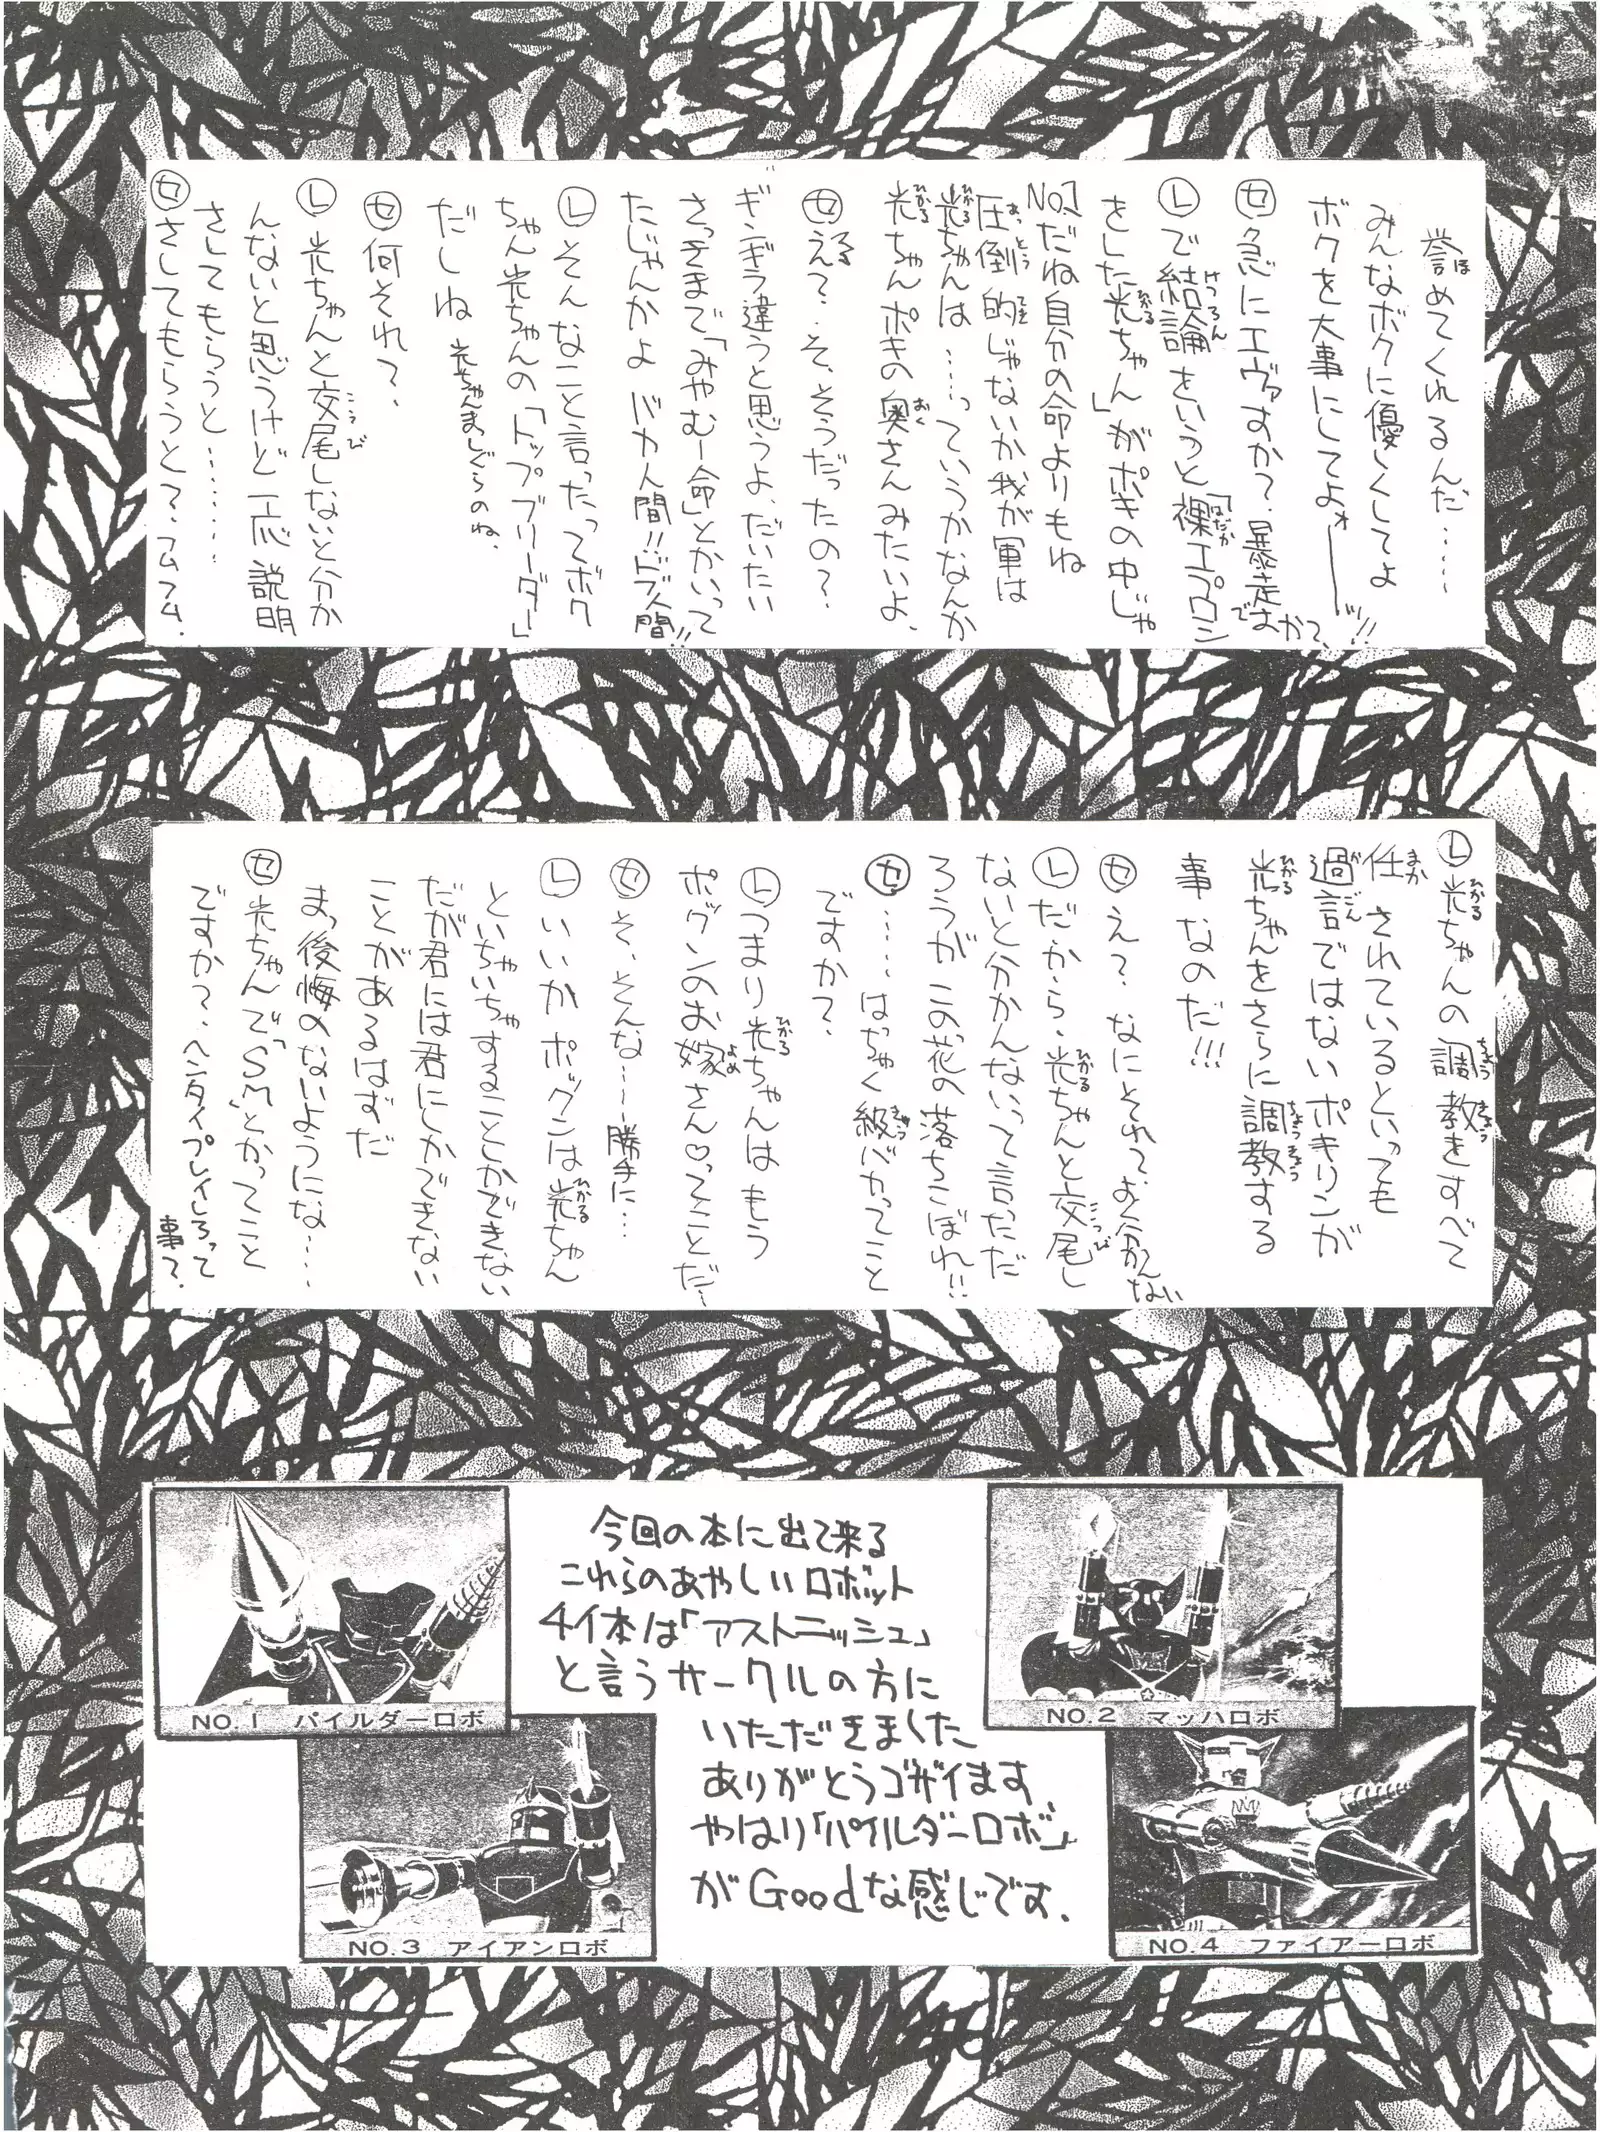 誉めてくれるんだ……
みんなボクに優しくしてよ
ボクを大事にしてよォーーッ!!
セ 急にエヴァすか?、暴走ですかて?
レ で結論をいうと「裸エプロン
をした光ちゃん」がポキの中じゃ
No.1だね自分の命よりもね
圧倒的じゃないか我が軍は
光ちゃんは……っていうかなんか
光ちゃんポキの奥さんみたいよ、
セ え?、そ、そうだったの?、
ギンギラ違うと思うよ、だいたい
さっきまで「みやむー命」とかいって
たじゃんかよ バカ人間!!ドブ人間!!
レ そんなこと言ったってボク
ちゃん光ちゃんの「トップブリーダー」
だしね 光ちゃんましぐらのね、
セ 何それ?、
レ 光ちゃんと交尾しないと分か
んないと思うけど一応説明
さしてもらうと………
セ さしてもらうと?、フムフム、
レ 光ちゃんの調教をすべて
任されているといっても
過言ではないポキリンが
光ちゃんをさらに調教する
事なのだ!!!
セ え?、なにそれ?、よく分かんない
レ だ・か・ら、光ちゃんと交尾し
ないと分かんないって言っただ
ろうが この“花の落ちこぼれ!!
セ ……はっちゃく級バカってこと
ですか?、
レ つまり光ちゃんはもう
ポグンのお嫁さん♡ってことだ…
セ そ、そんな~~勝手に…
レ いいか ポグンは光ちゃん
といちゃいちゃすることしかできない
だが君には君にしかできない
ことがあるはずだ
まっ後悔のないようにな……
セ 光ちゃんで“SM”とかってこと
ですか?、ヘンタイプレイしろって
事?、
今回の本に出て来る
これらのあやしいロボット
4イ本は「アストニッシュ」
と言うサークルの方に
いただきました
ありがとうゴザイます、
やはり「パイルダーロボ」
がGoodな感じです、
NO.1 パイルダーロボ
NO.2 マッハロボ
NO.3 アイアンロボ
NO.4 ファイアーロボ